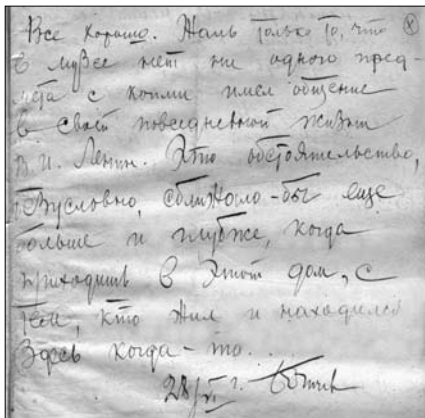 Все хорошо. Жаль только то, что
в музее нет ни одного пред-
мета с коими имел общение
в своей повседневной жизни
В. И. Ленин. Это обстоятельство,
безусловно, сближало-бы еще
больше и глубже, когда
приходишь в этот дом, с
тем, кто жил и находился
здесь когда-то...
28/VI г.